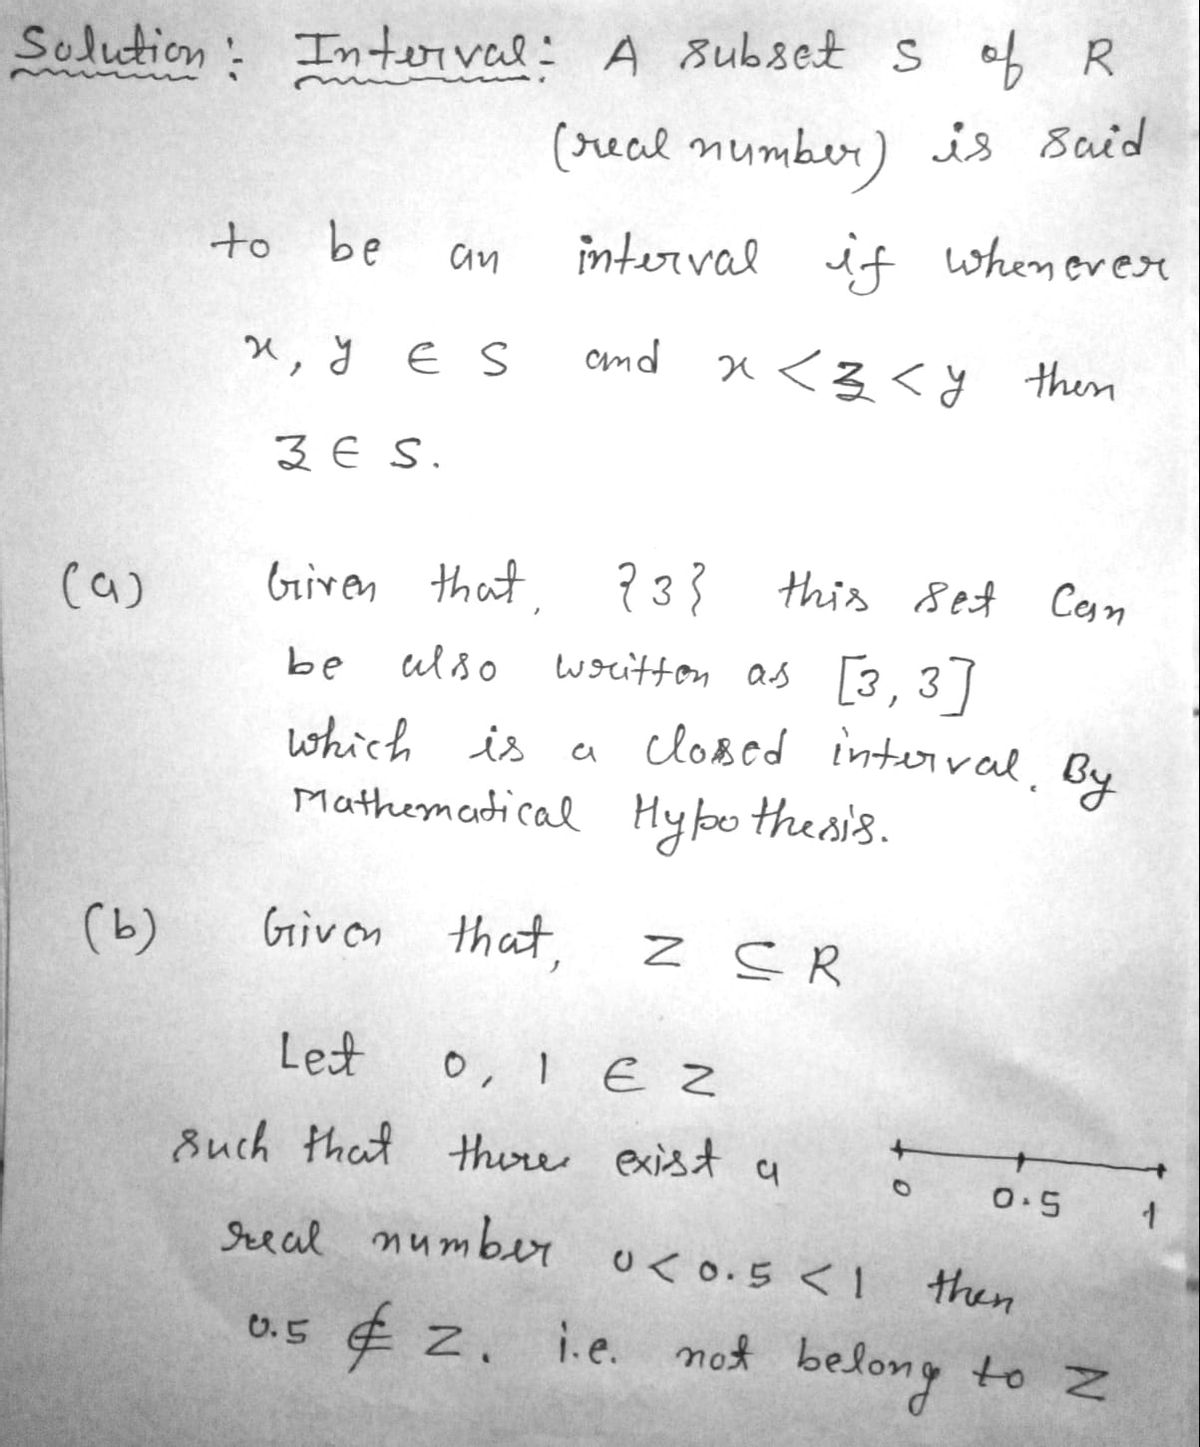 Solution: Interval: A subset S of R
(real number) is said
to be an interval if whenever
x, y ∈ S and x < z < y then
z ∈ S.
(a) Given that, {3} this set can
be also written as [3, 3]
which is a closed interval. By
Mathematical Hypothesis.
(b) Given that, Z ⊆ R
Let 0, 1 ∈ Z
such that there exist a
0 0.5 1
real number 0 < 0.5 < 1 then
0.5 ∉ Z. i.e. not belong to Z